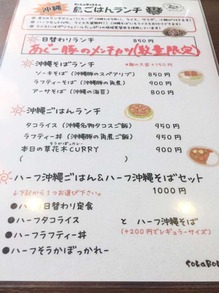 沖縄 島ごはんランチ
日替わりランチ 850円
あぐー豚のメンチカツ(数量限定)
沖縄そばランチ
ソーキそば (沖縄豚のスペアリブ) 850円
ラフティーそば (沖縄豚の角煮) 900円
アーサそば (沖縄の海苔) 800円
沖縄ごはんランチ
タコライス (沖縄名物タコスご飯) 950円
ラフティー丼 (沖縄豚の角煮ご飯) 950円
本日の草花木CURRY 950円
( )
ハーフ沖縄ごはん&ハーフ沖縄そばセット
1000円
↓下記から1つお選び下さい。
●ハーフ日替わり定食
●ハーフタコライス と ハーフ沖縄そば
●ハーフラフティー丼 (+200円でレギュラーサイズ)
●ハーフそうかぼっかれー